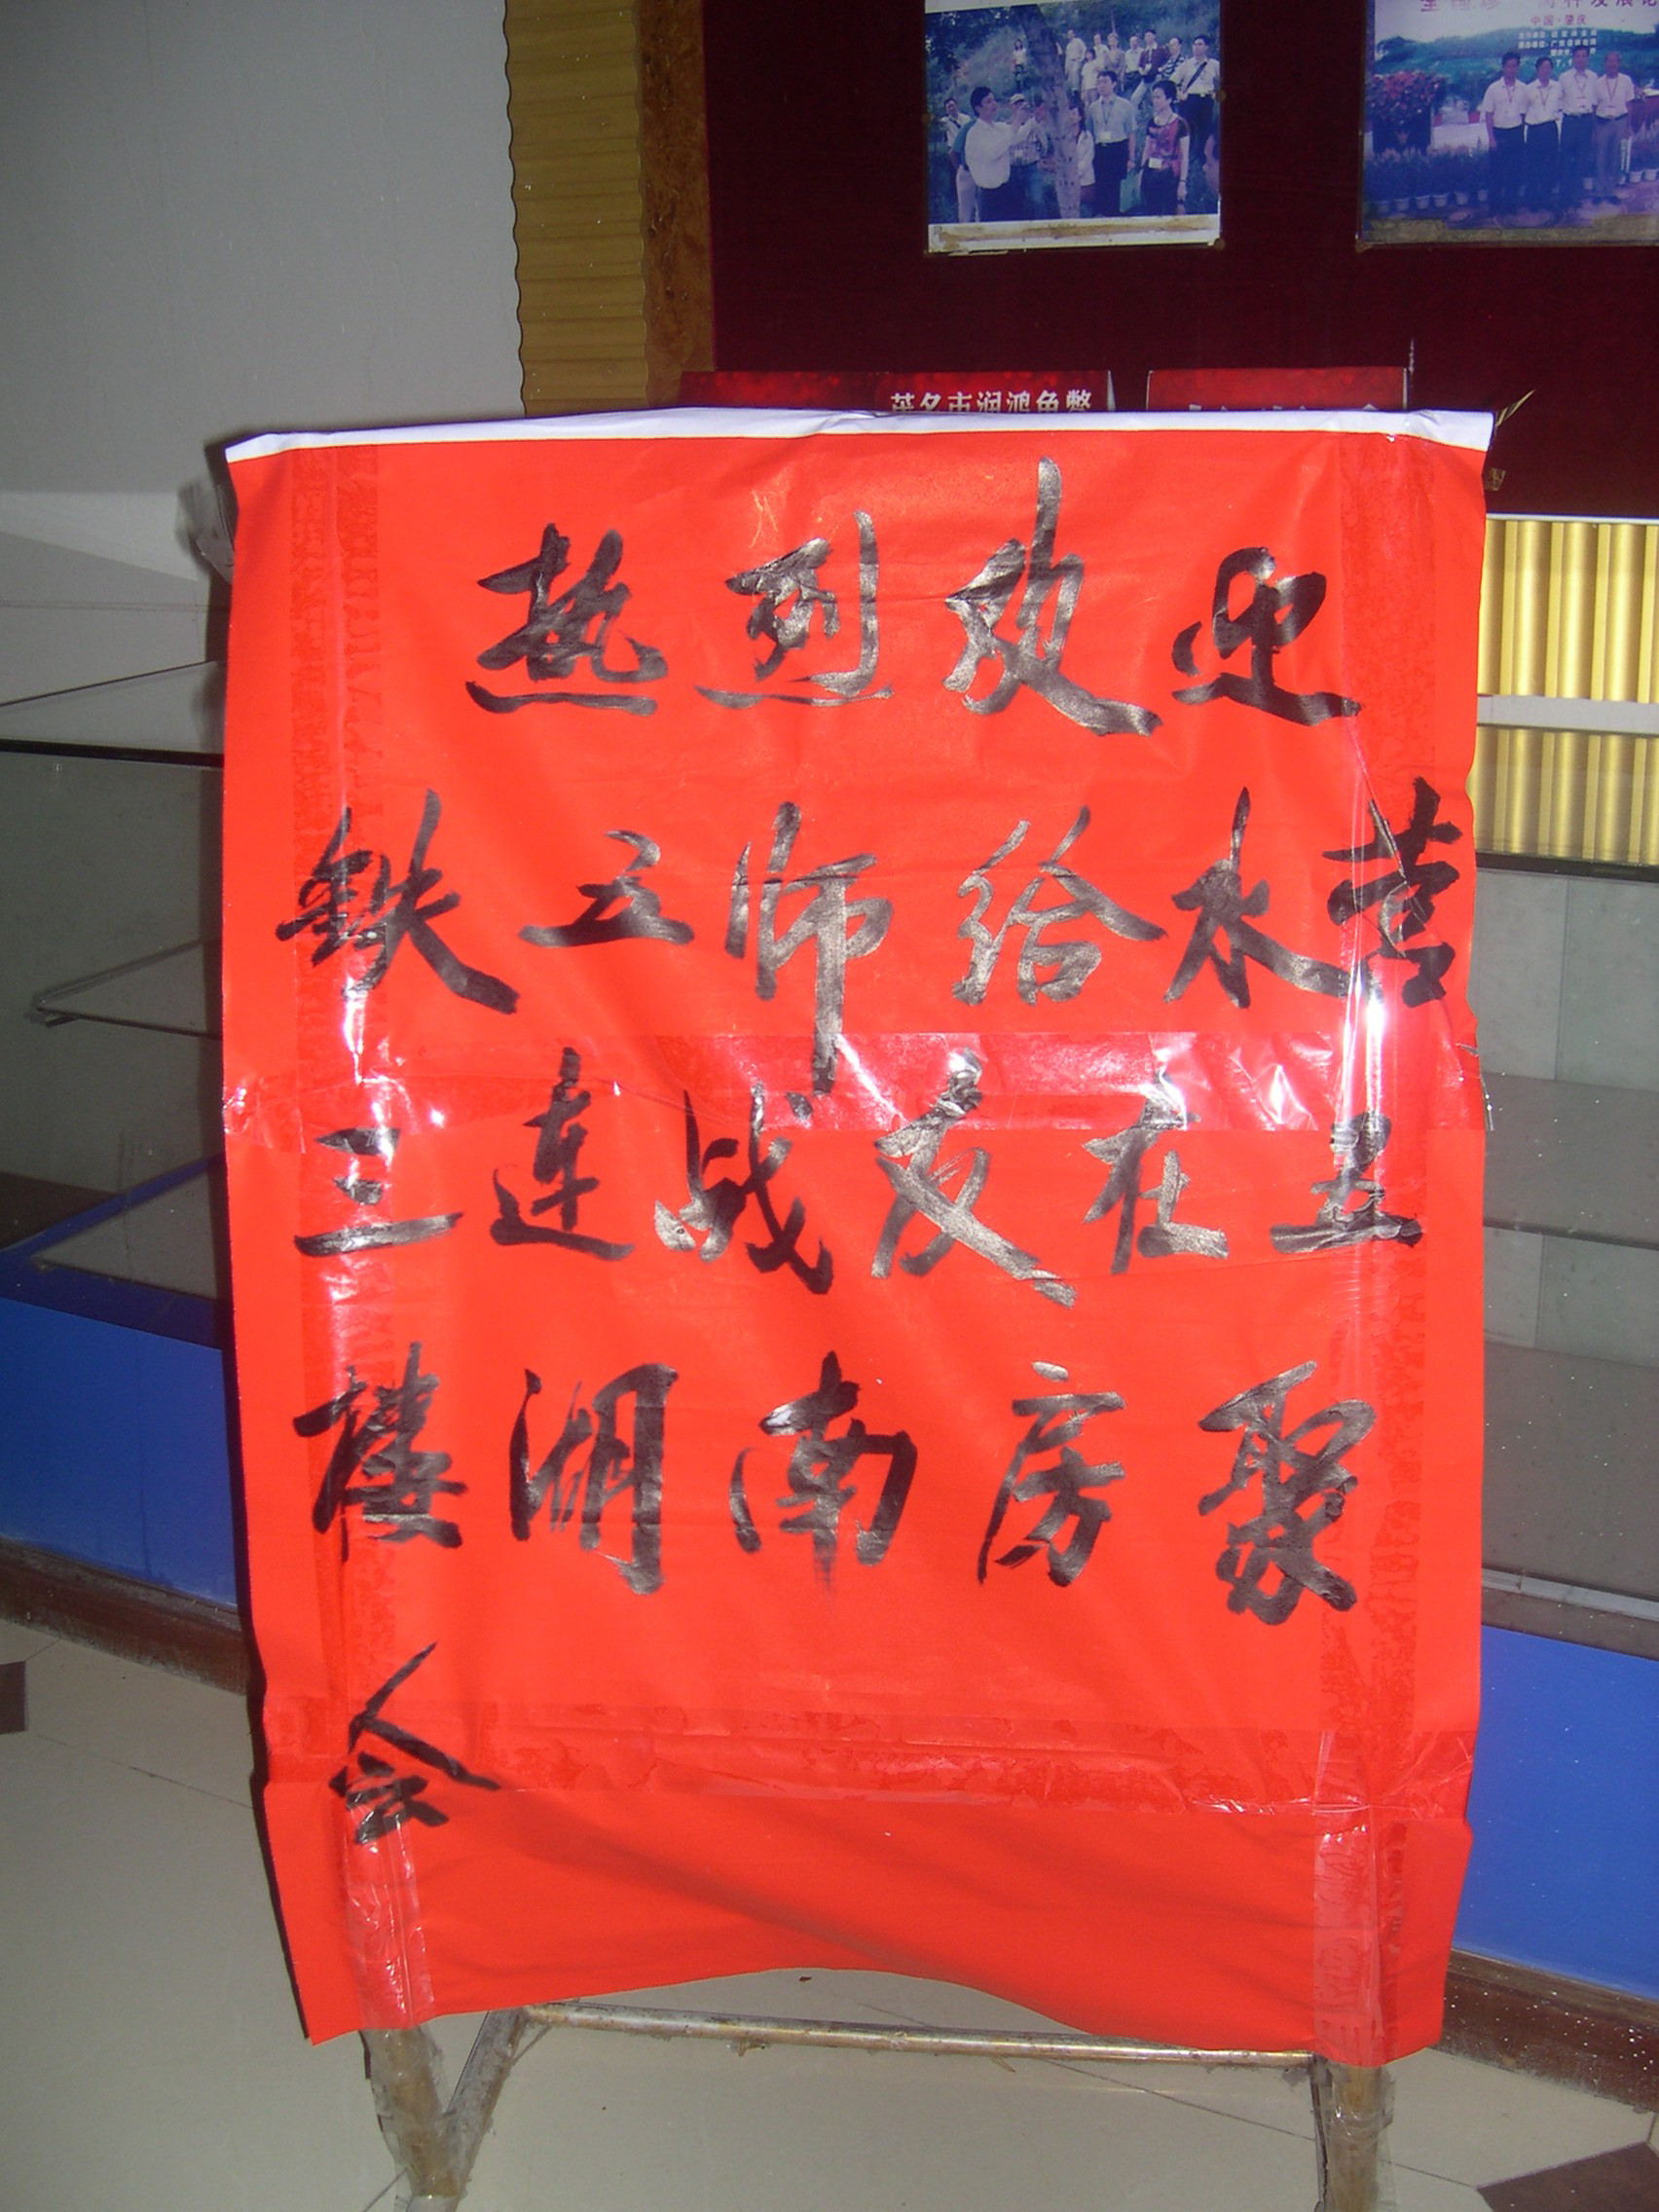 中国·肇庆
茂名市润鸿
热烈欢迎
铁五师给水营
三连战友在五
楼湖南房聚
会